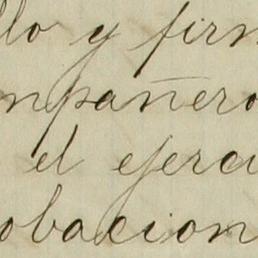 llo y firm
mpañero
el ejerci
obacion